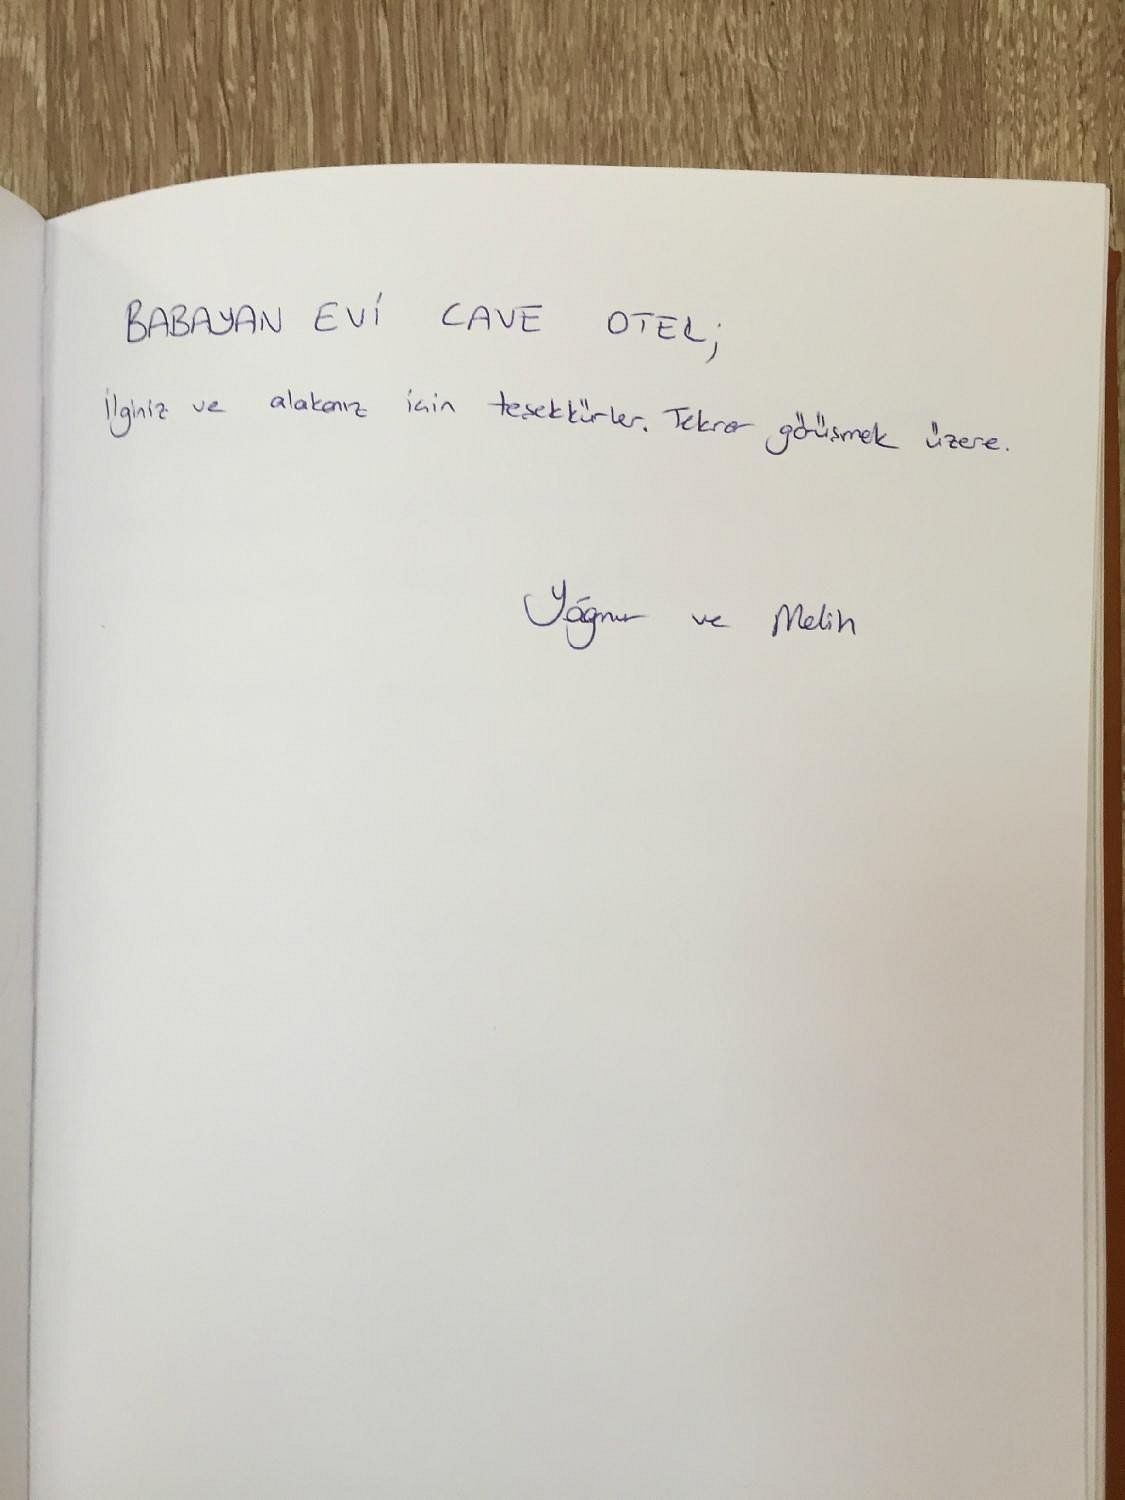 BABAYAN EVİ CAVE OTEL;
İlginiz ve alakanız için teşekkürler. Tekrar görüşmek üzere.
Yağmur ve Melih